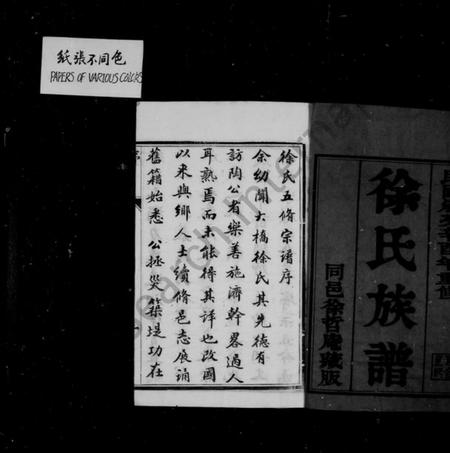 紙張不同色
PAPERS OF VARIOUS COLORS
徐氏族譜
同邑徐哲庵藏版
徐氏五修宗譜序
余幼聞大橋徐氏其先德有
訪陶公者樂善施濟幹畧過人
耳熟焉而未能得其詳也改國
以來與鄉人士續脩邑志展誦
舊籍始悉 公拯災築堤功在